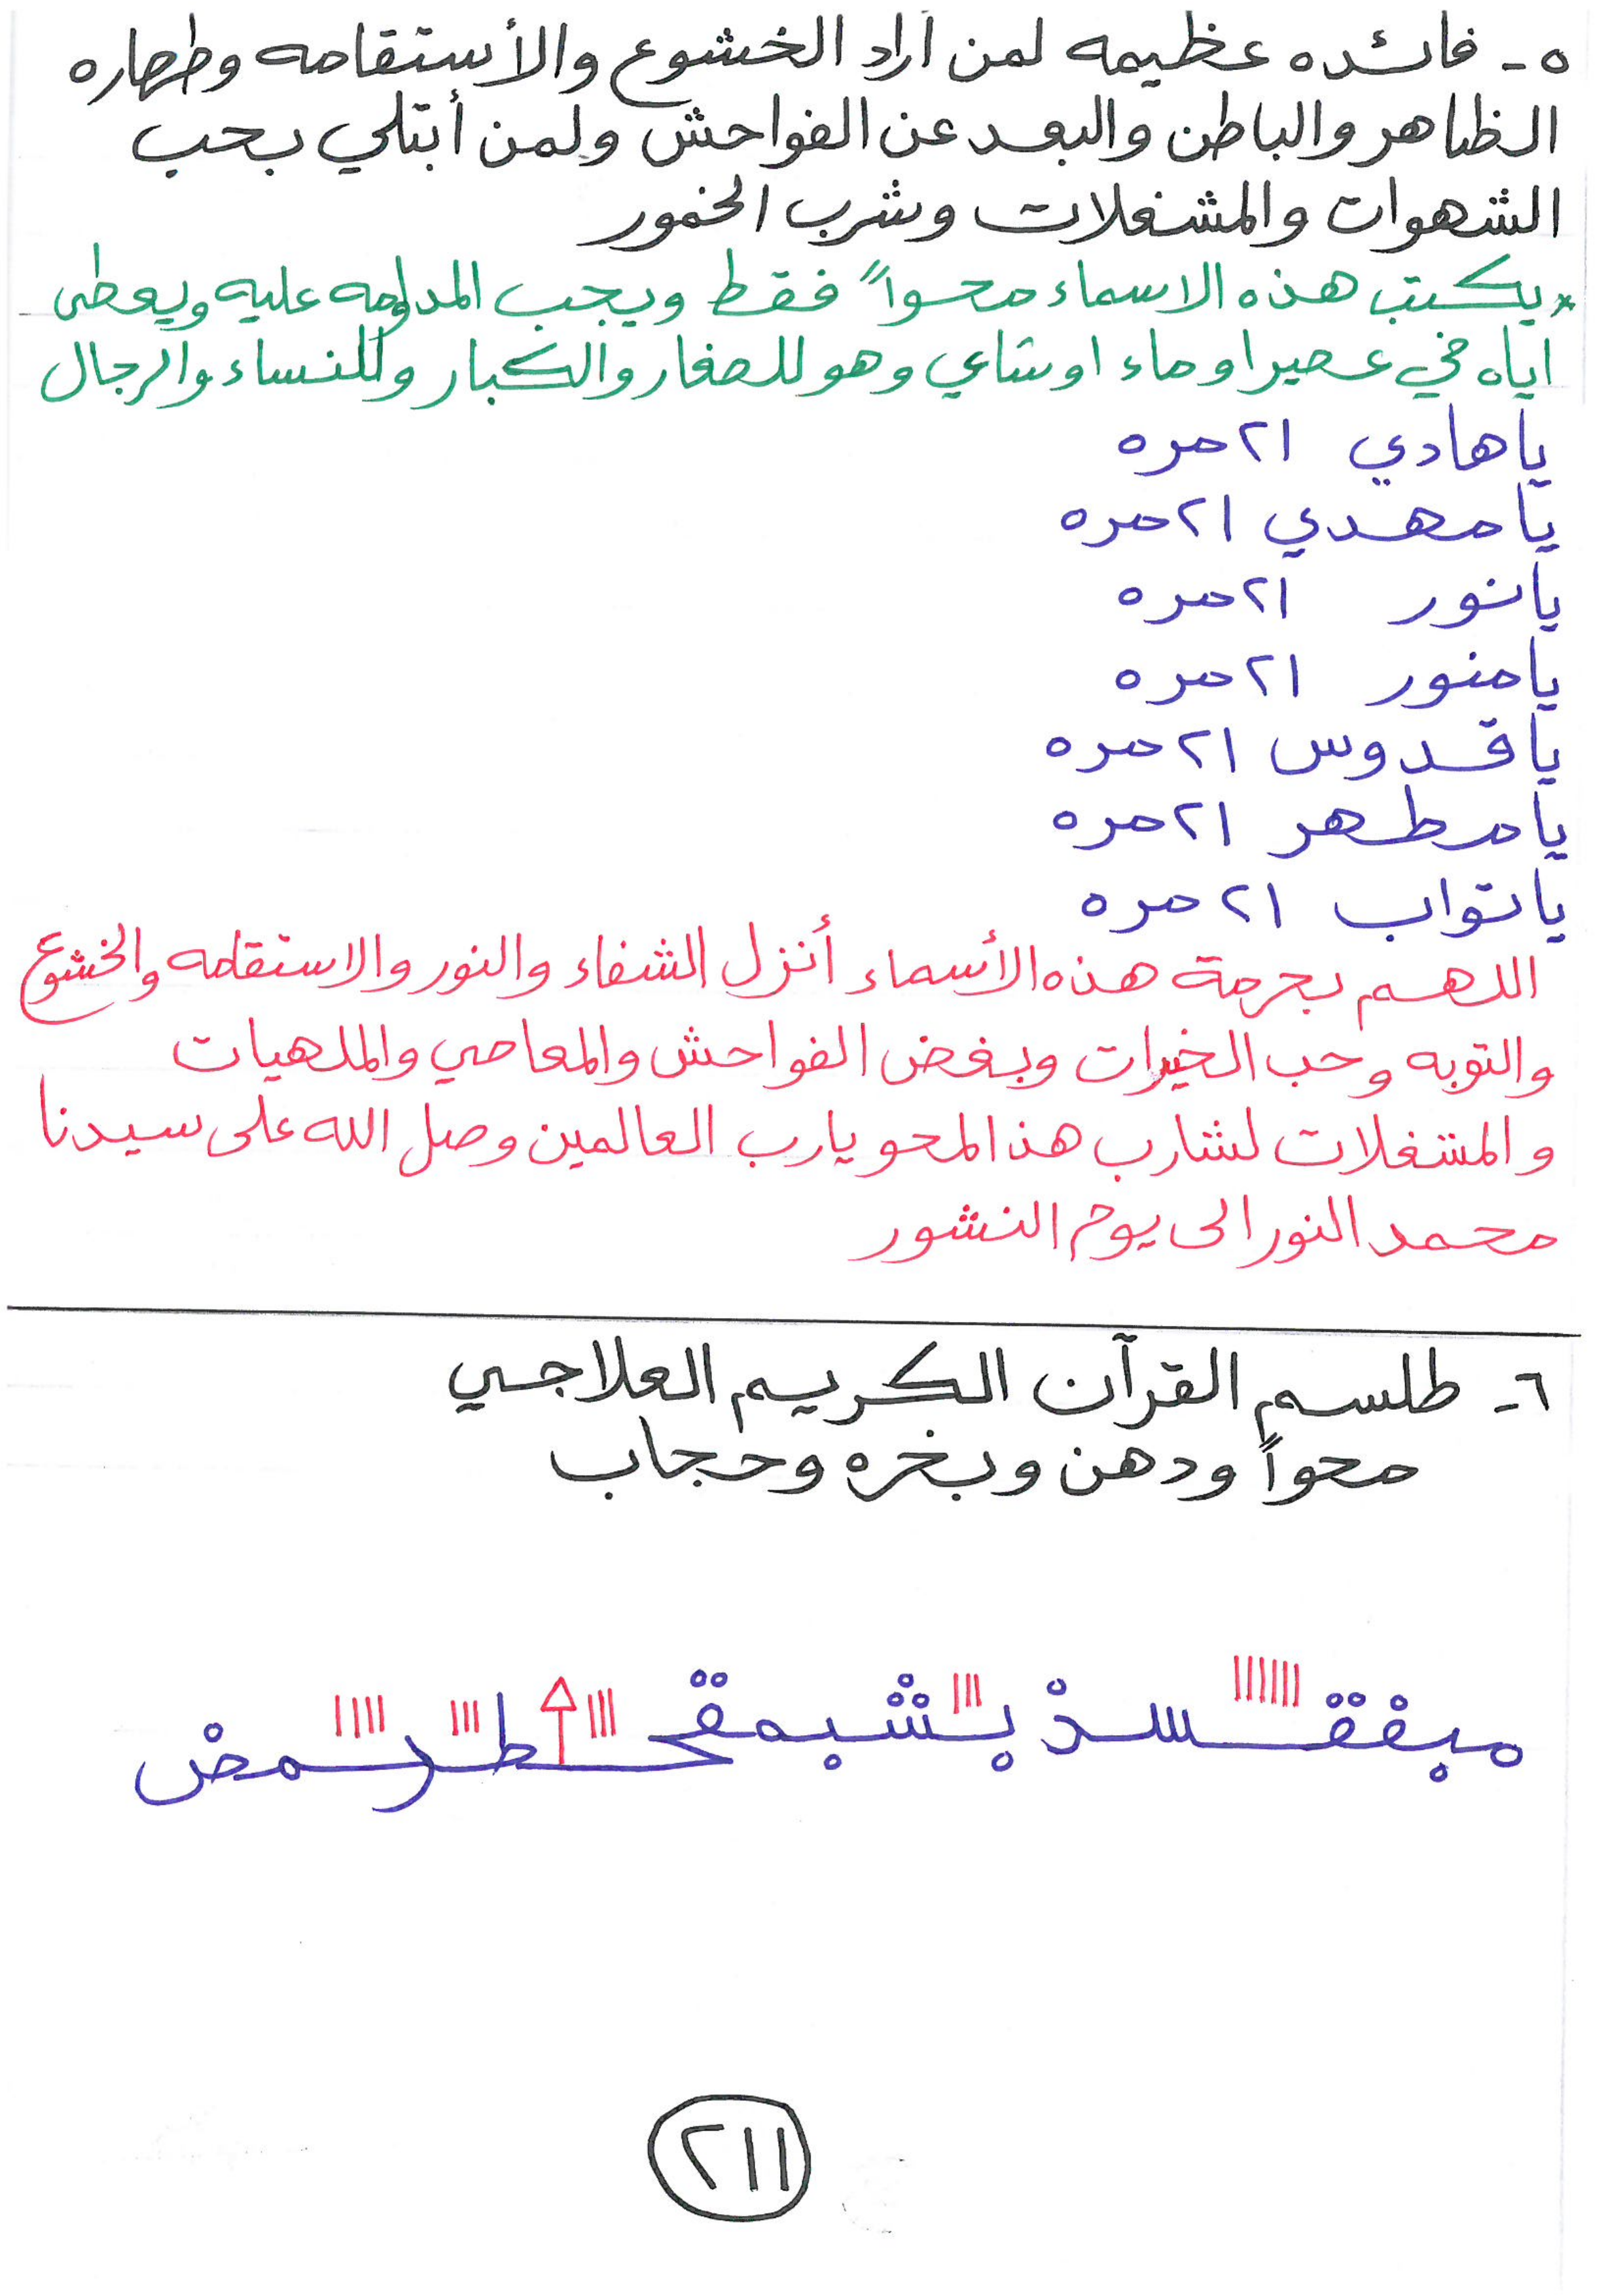 ٥- فائده عظيمه لمن أراد الخشوع والأستقامه وطهاره
الظاهر والباطن والبعد عن الفواحش ولمن أبتلي بحب
الشهوات والمشغلات وشرب الخمور
* يكتب هذه الاسماء محواً فقط ويجب المداومه عليه ويعطى
اياه في عصير او ماء او شاي وهو للصغار والكبار وللنساء والرجال
يا هادي ٢١ مره
يا مهدي ٢١ مره
يا نور ٢١ مره
يا منور ٢١ مره
يا قدوس ٢١ مره
يا مطهر ٢١ مره
يا تواب ٢١ مره
اللهم بحرمة هذه الأسماء أنزل الشفاء والنور والاستقامه والخشوع
والتوبه وحب الخيرات وبغض الفواحش والمعاصي والملهيات
والمشغلات لشارب هذا المحو يارب العالمين وصل الله على سيدنا
محمد النور الى يوم النشور
٦- طلسم القرآن الكريم العلاجي
محواً ودهن وبخره وحجاب
٢١١